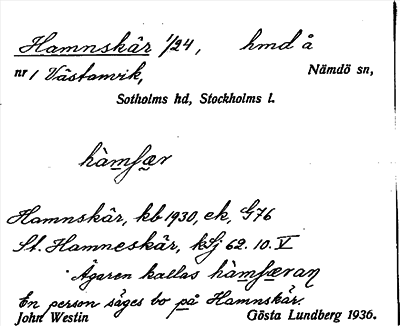 Hamnskär 1/24, hmd å
nr 1 Västanvik, Nämdö sn,
Sotholms hd, Stockholms l.
hàmsær
Hamnskär, kb 1930, ek, G76
St. Hamneskär, kSj 62. 10. V
Ägaren kallas hàmsæran
En person säges bo på Hamnskär.
John Westin Gösta Lundberg 1936.